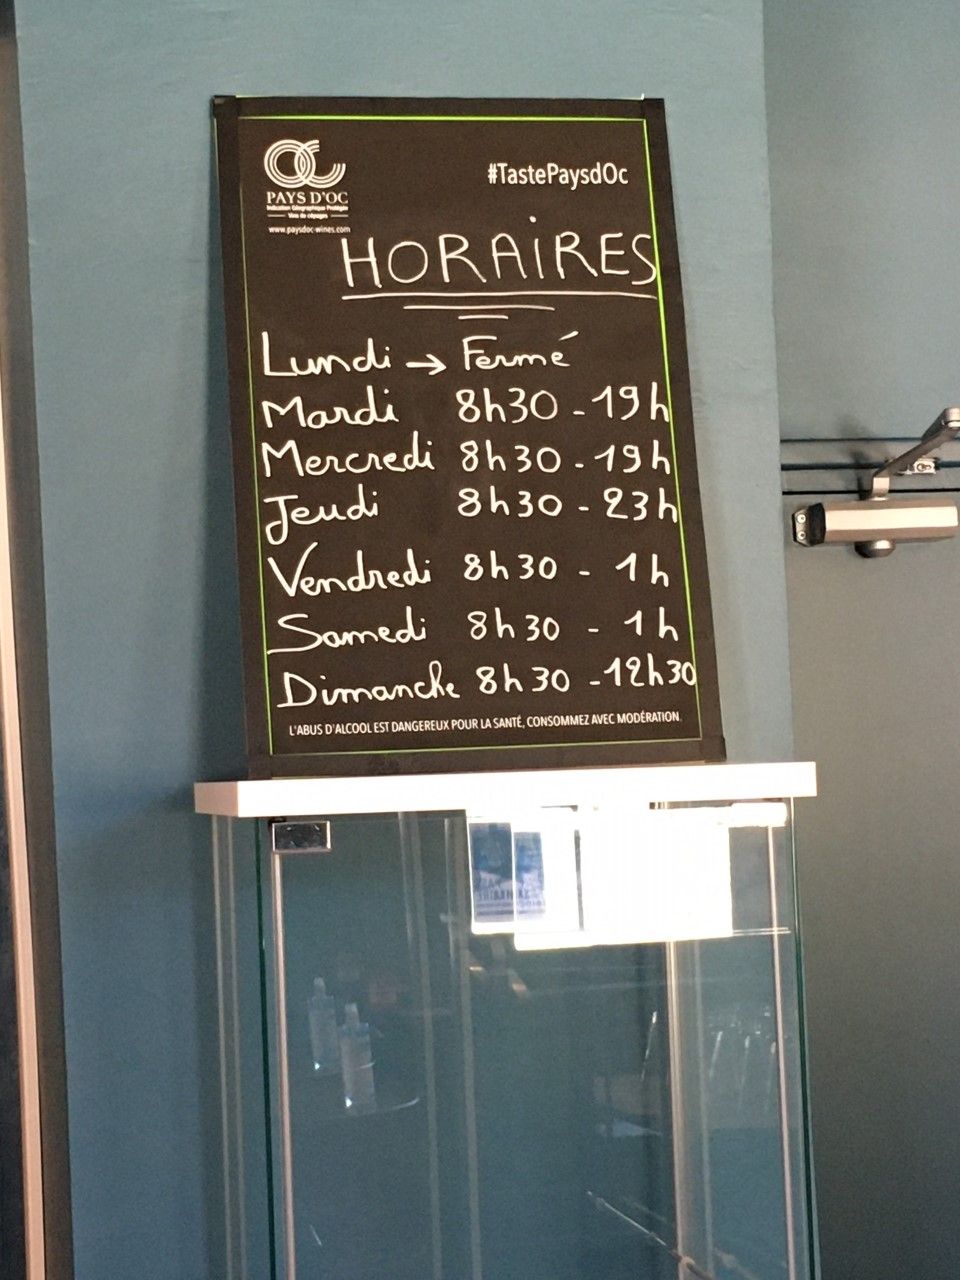 #TastePaysdOc
PAYS D'OC
Indication Géographique Protégée
Vins de cépages
www.paysdoc-wines.com
HORAIRES
Lundi → Fermé
Mardi 8h30 - 19h
Mercredi 8h30 - 19h
Jeudi 8h30 - 23h
Vendredi 8h30 - 1h
Samedi 8h30 - 1h
Dimanche 8h30 - 12h30
L'ABUS D'ALCOOL EST DANGEREUX POUR LA SANTÉ, CONSOMMEZ AVEC MODÉRATION.